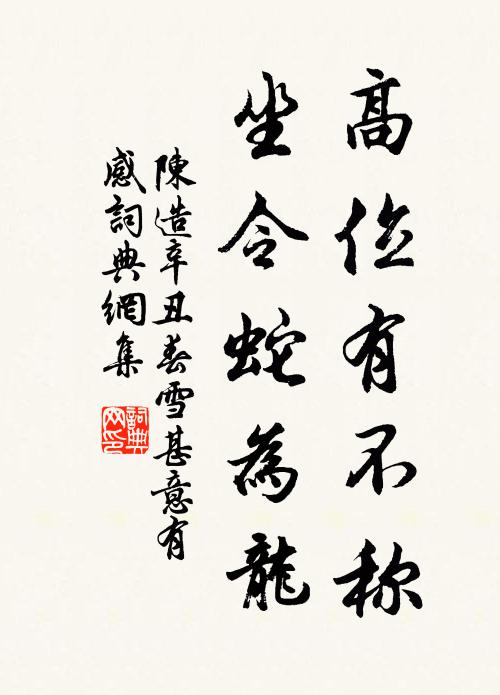 高位有不称
坐令蛇為龍
陳造辛丑春雪甚意有
感詞典網集
詞典
网印